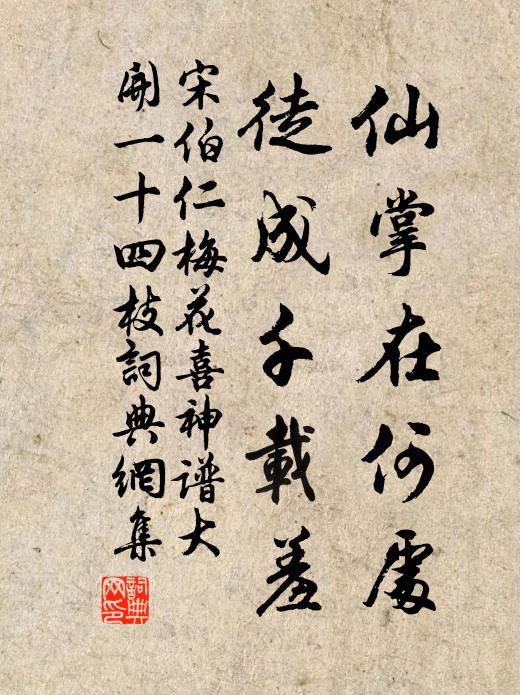 仙掌在何處
徒成千載羞
宋伯仁梅花喜神譜大
開一十四枝詞典網集
詞典
網印